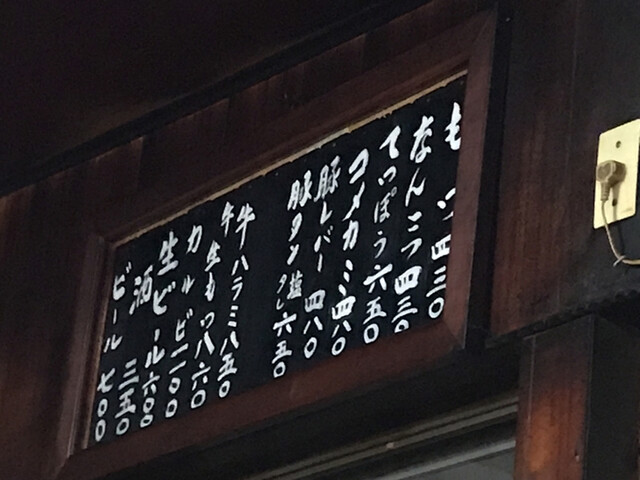 もつ 四三〇
なんこつ 四三〇
てっぽう 六五〇
コメカミ 四八〇
豚レバー 四八〇
豚タン 塩 タレ 六五〇
牛ハラミ 八五〇
牛生もつ 八六〇
カルビ 一一〇〇
生ビール 六〇〇
酒 三五〇
ビール 七〇〇